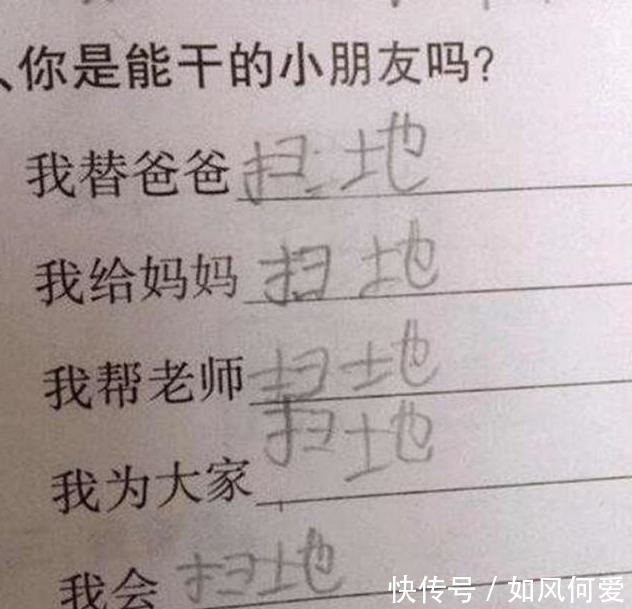 、你是能干的小朋友吗?
我替爸爸扫地
我给妈妈扫地
我帮老师扫地
我为大家扫地
我会扫地
快传号/如风何爱